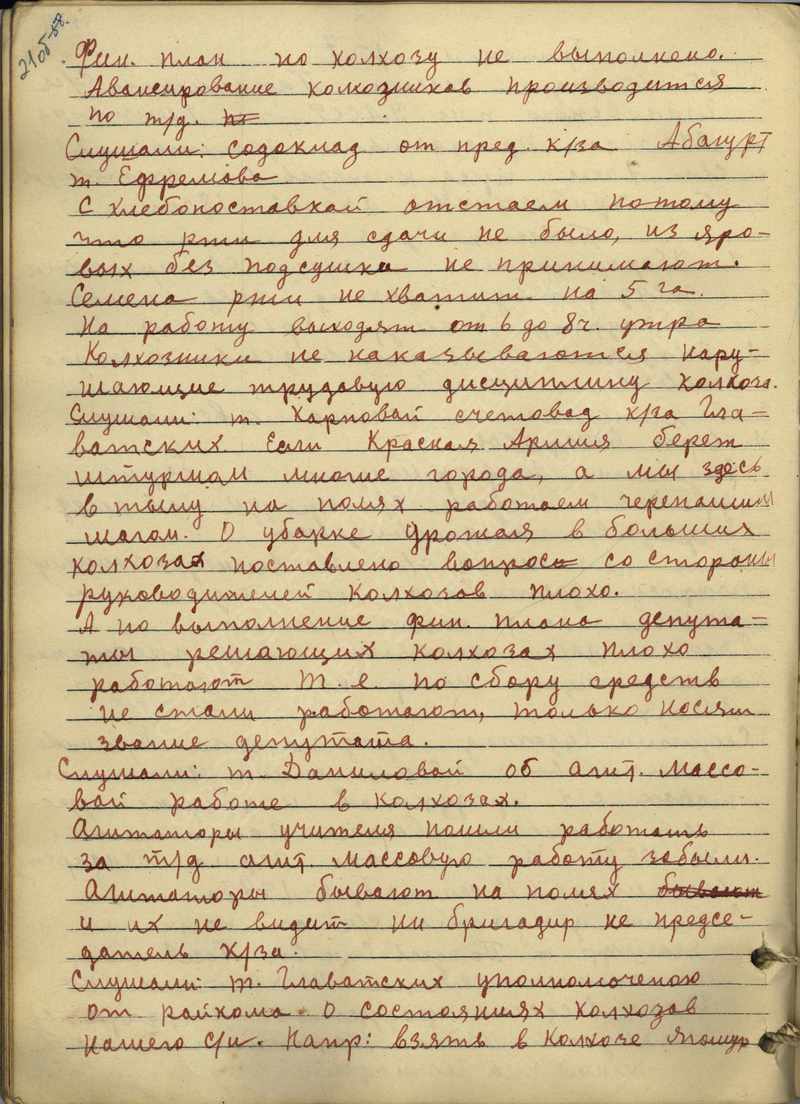 21об-58.
Фин. план по колхозу не выполнено.
Авансирование колхозников производится
по т/д.
Слушали: содоклад от пред. к/за Абагурт
т. Ефремова
С хлебопоставкой отстаем потому
что ржи для сдачи не было, из яро-
вых без подсушки не принимают.
Семена ржи не хватит на 5 га.
На работу выходят от 6 до 8 ч. утра
Колхозники не наказываются нару-
шающие трудовую дисциплину колхоза.
Слушали: т. Карповой счетовод к/за Гла-
ватских Если Красная Армия берет
штурмом многие города, а мы здесь
в тылу на полях работаем черепашим
шагом. О уборке урожая в больших
колхозах поставлено вопрос со стороны
руководителей колхозов плохо.
А по выполнение фин. плана депута-
ты решающих колхозах плохо
работают т.е. по сбору средств
не стали работают, только носят
звание депутата.
Слушали: т. Даниловой об агит. массо-
вой работе в колхозах.
Агитаторы учителя пошли работать
за т/д агит. массовую работу забыли.
Агитаторы бывают на полях бывают
и их не видит ни бригадир не предсе-
датель к/за.
Слушали т. Главатских уполномоченою
от райкома. О состояниях колхозов
нашего с/с. Напр: взять в колхозе Ягошур